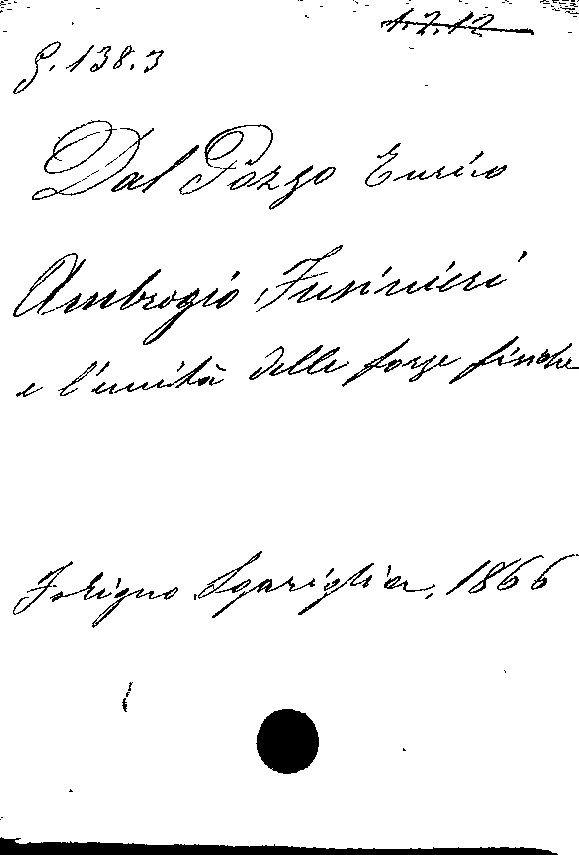 1.2.12
G.138.3
Dal Pozzo Enrico
Ambrogio Fusinieri
e l'unità delle forze fisiche
Foligno Sgariglia, 1866